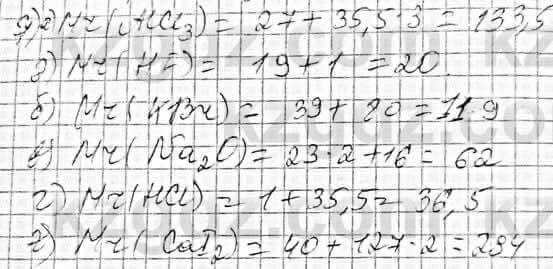 д) Mr(AlCl₃) = 27 + 35,5·3 = 133,5
з) Mr(HF) = 19 + 1 = 20
б) Mr(KBr) = 39 + 80 = 119
е) Mr(Na₂O) = 23·2 + 16 = 62
г) Mr(HCl) = 1 + 35,5 = 36,5
Mr(CaI₂) = 40 + 127·2 = 294